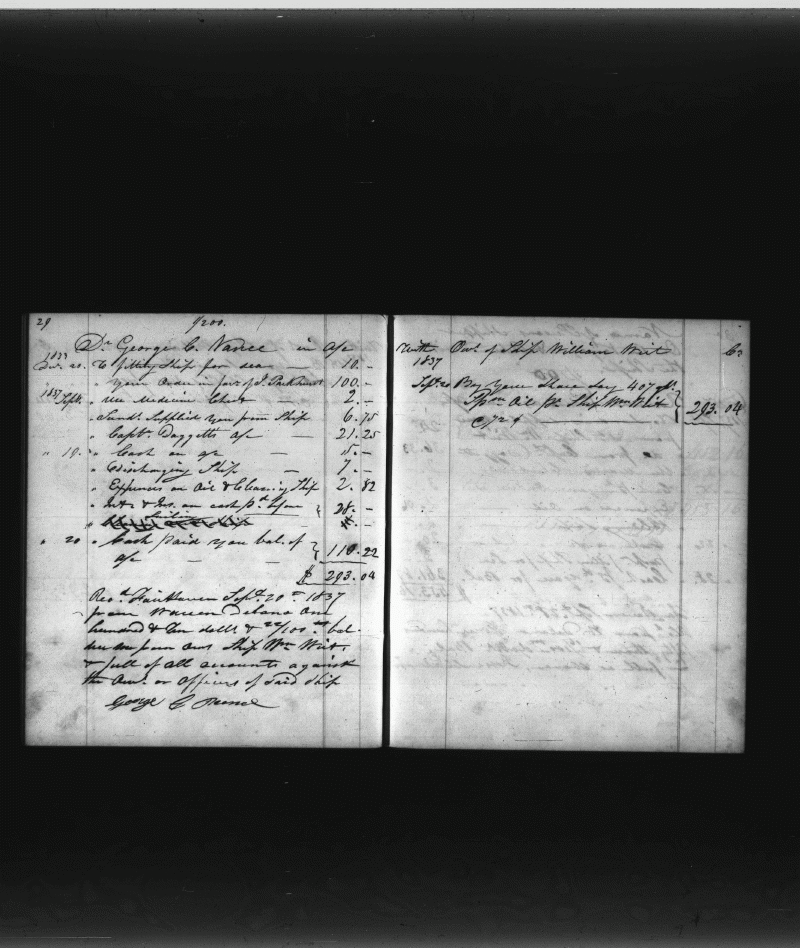 29
1/200.
Dr George C. Nance in a/c
1833
Dec. 20. To fitting Ship for sea — 10.–
" your Order in favr of J. Parkhurst 100.–
1837 Septr. " Use Medicine Chest — 2.–
" Sunds. Supplied you from Ship 6.75
" Capt. Daggetts a/c — 21.25
" 19. " Cash on a/c — 15.–
" Discharging Ship — 7.–
" Expenses on Oil & Cleaning Ship 2.82
" Int. & Ins. on cash pd. 28.–
" 20 " Cash paid you bal. of
a/c — — 110.22
$ 293.04
Recd. Fairhaven Sept. 20th 1837
from Warren Delano One
hundred & Ten dolls & 22/100 bal.
due me from Ship Wm Wirt,
& full of all accounts against
the Ows. or Officers of said Ship
George C. Nance
With Ows. of Ship William Wirt Cr
1837
Sept. 20 By Your Share Say 407 gls.
Sprm Oil pr. Ship Wm Wirt 293.04
@ 72 ¢